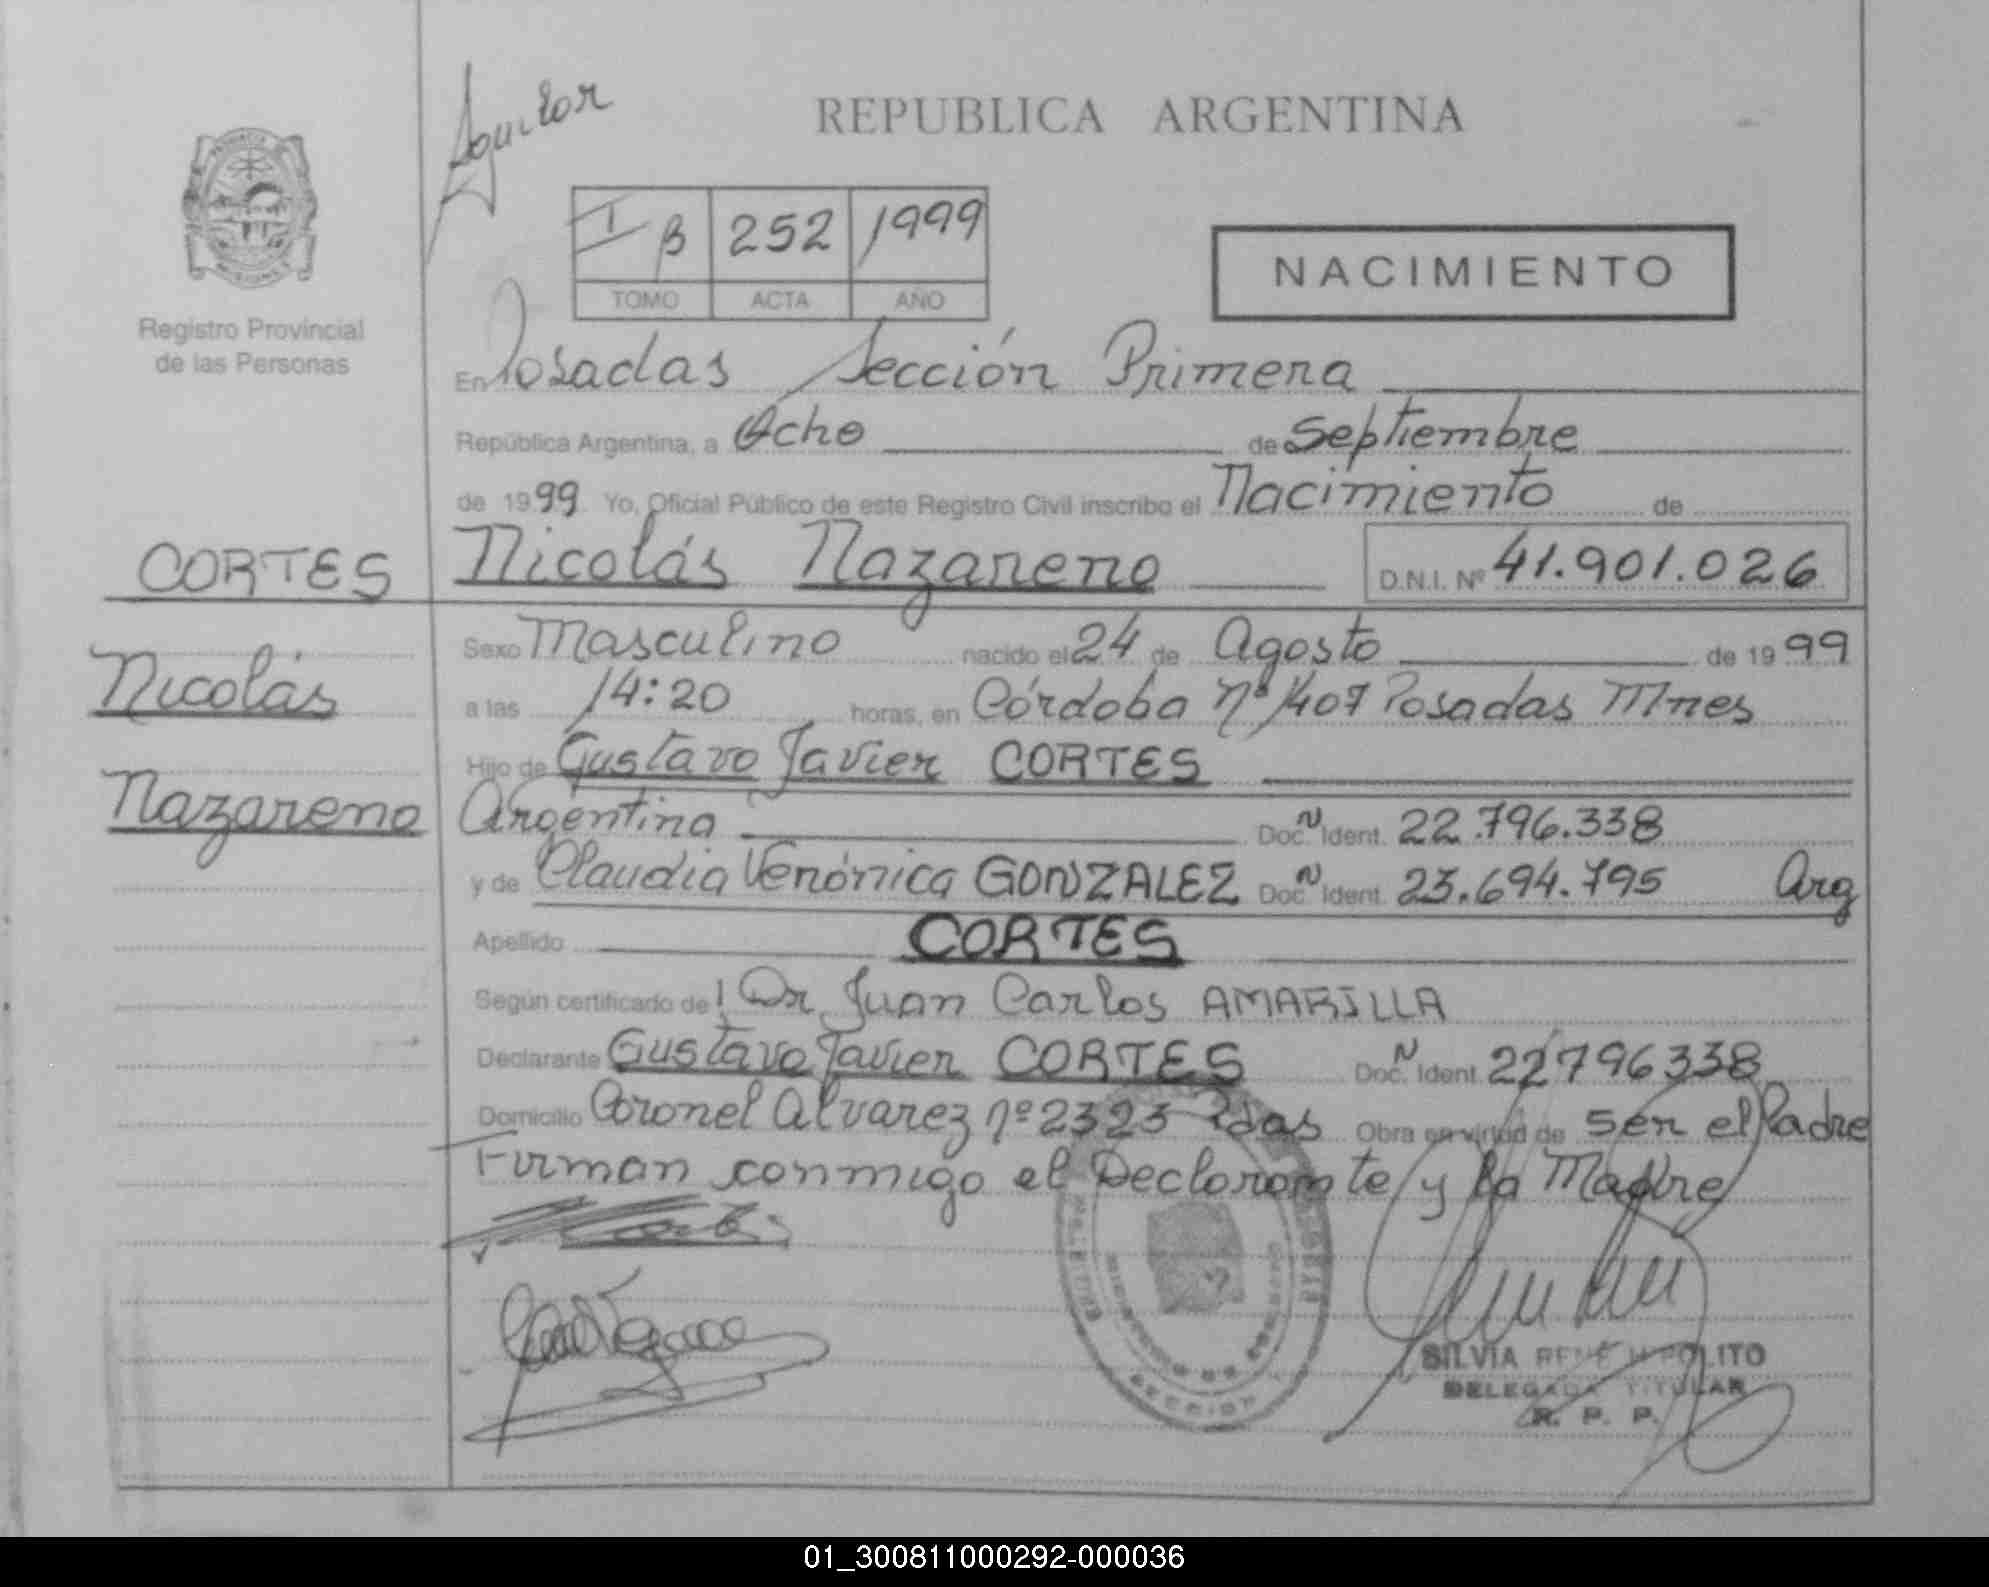 Aguilar
REPUBLICA ARGENTINA
I B 252 1999
TOMO ACTA AÑO
NACIMIENTO
Registro Provincial
de las Personas
En Posadas Sección Primera
República Argentina, a Ocho de Septiembre
de 1999 Yo, Oficial Público de este Registro Civil inscribo el Nacimiento de
CORTES Nicolás Nazareno D.N.I. Nº 41.901.026
Sexo Masculino nacido el 24 de Agosto de 1999
Nicolás
a las 14:20 horas, en Córdoba nº 1407 Posadas Mnes
Hijo de Gustavo Javier CORTES
Nazareno
Argentina Doc. N Ident. 22.796.338
y de Claudia Verónica GONZALEZ Doc. N Ident. 23.694.795 Arg
Apellido CORTES
Según certificado de Dr Juan Carlos AMARILLA
Declarante Gustavo Javier CORTES Doc. N Ident. 22796338
Domicilio Coronel Alvarez nº 2323 Pdas Obra en virtud de ser el Padre
Firman conmigo el Declarante y la Madre
SILVIA RENÉ HIPOLITO
DELEGADA TITULAR
R. P. P.
SECCION
01_300811000292-000036